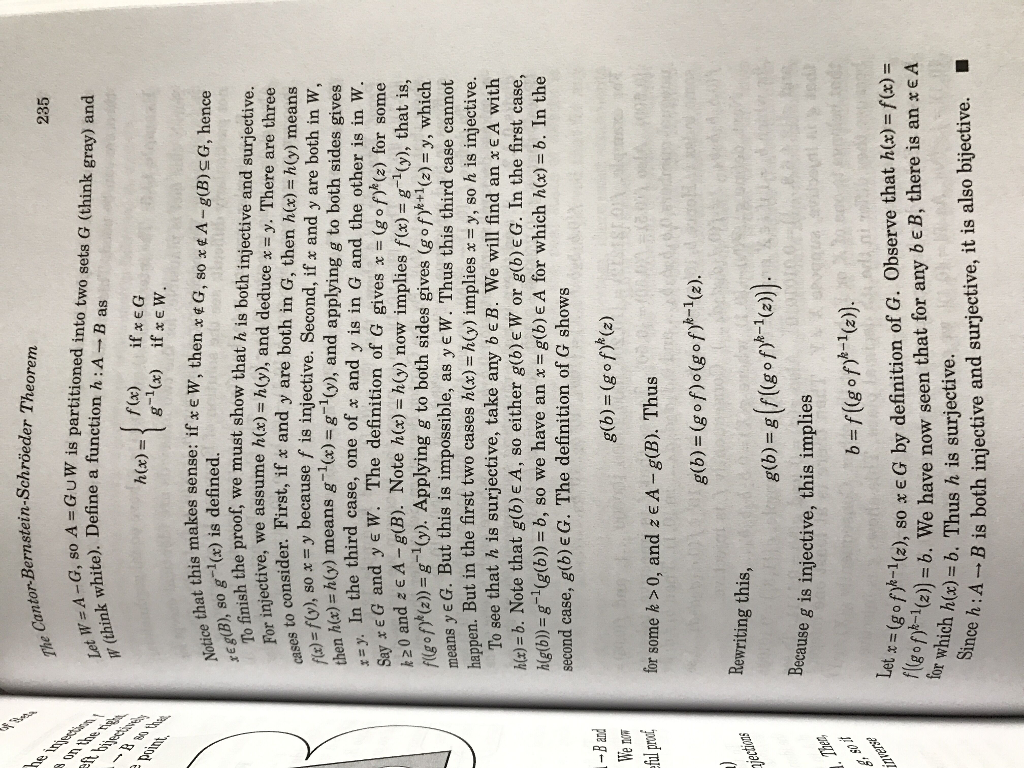 The Cantor-Bernstein-Schröeder Theorem 235
Let W = A − G, so A = G ∪ W is partitioned into two sets G (think gray) and
W (think white). Define a function h : A → B as
h(x) = { f(x) if x ∈ G
g⁻¹(x) if x ∈ W.
Notice that this makes sense: if x ∈ W, then x ∉ G, so x ∉ A − g(B) ⊆ G, hence
x ∈ g(B), so g⁻¹(x) is defined.
To finish the proof, we must show that h is both injective and surjective.
For injective, we assume h(x) = h(y), and deduce x = y. There are three
cases to consider. First, if x and y are both in G, then h(x) = h(y) means
f(x) = f(y), so x = y because f is injective. Second, if x and y are both in W,
then h(x) = h(y) means g⁻¹(x) = g⁻¹(y), and applying g to both sides gives
x = y. In the third case, one of x and y is in G and the other is in W.
Say x ∈ G and y ∈ W. The definition of G gives x = (g ∘ f)ᵏ(z) for some
k ≥ 0 and z ∈ A − g(B). Note h(x) = h(y) now implies f(x) = g⁻¹(y), that is,
f((g ∘ f)ᵏ(z)) = g⁻¹(y). Applying g to both sides gives (g ∘ f)ᵏ⁺¹(z) = y, which
means y ∈ G. But this is impossible, as y ∈ W. Thus this third case cannot
happen. But in the first two cases h(x) = h(y) implies x = y, so h is injective.
To see that h is surjective, take any b ∈ B. We will find an x ∈ A with
h(x) = b. Note that g(b) ∈ A, so either g(b) ∈ W or g(b) ∈ G. In the first case,
h(g(b)) = g⁻¹(g(b)) = b, so we have an x = g(b) ∈ A for which h(x) = b. In the
second case, g(b) ∈ G. The definition of G shows
g(b) = (g ∘ f)ᵏ(z)
for some k > 0, and z ∈ A − g(B). Thus
g(b) = (g ∘ f) ∘ (g ∘ f)ᵏ⁻¹(z).
Rewriting this,
g(b) = g(f((g ∘ f)ᵏ⁻¹(z))).
Because g is injective, this implies
b = f((g ∘ f)ᵏ⁻¹(z)).
Let x = (g ∘ f)ᵏ⁻¹(z), so x ∈ G by definition of G. Observe that h(x) = f(x) =
f((g ∘ f)ᵏ⁻¹(z) = b. We have now seen that for any b ∈ B, there is an x ∈ A
for which h(x) = b. Thus h is surjective.
Since h : A → B is both injective and surjective, it is also bijective. ■
of Sets
he injection f
s on the right
eft bijectively
→ B so that
e point.
→ B and
We now
eful proof,
njections
Then,
g, so it
inverse